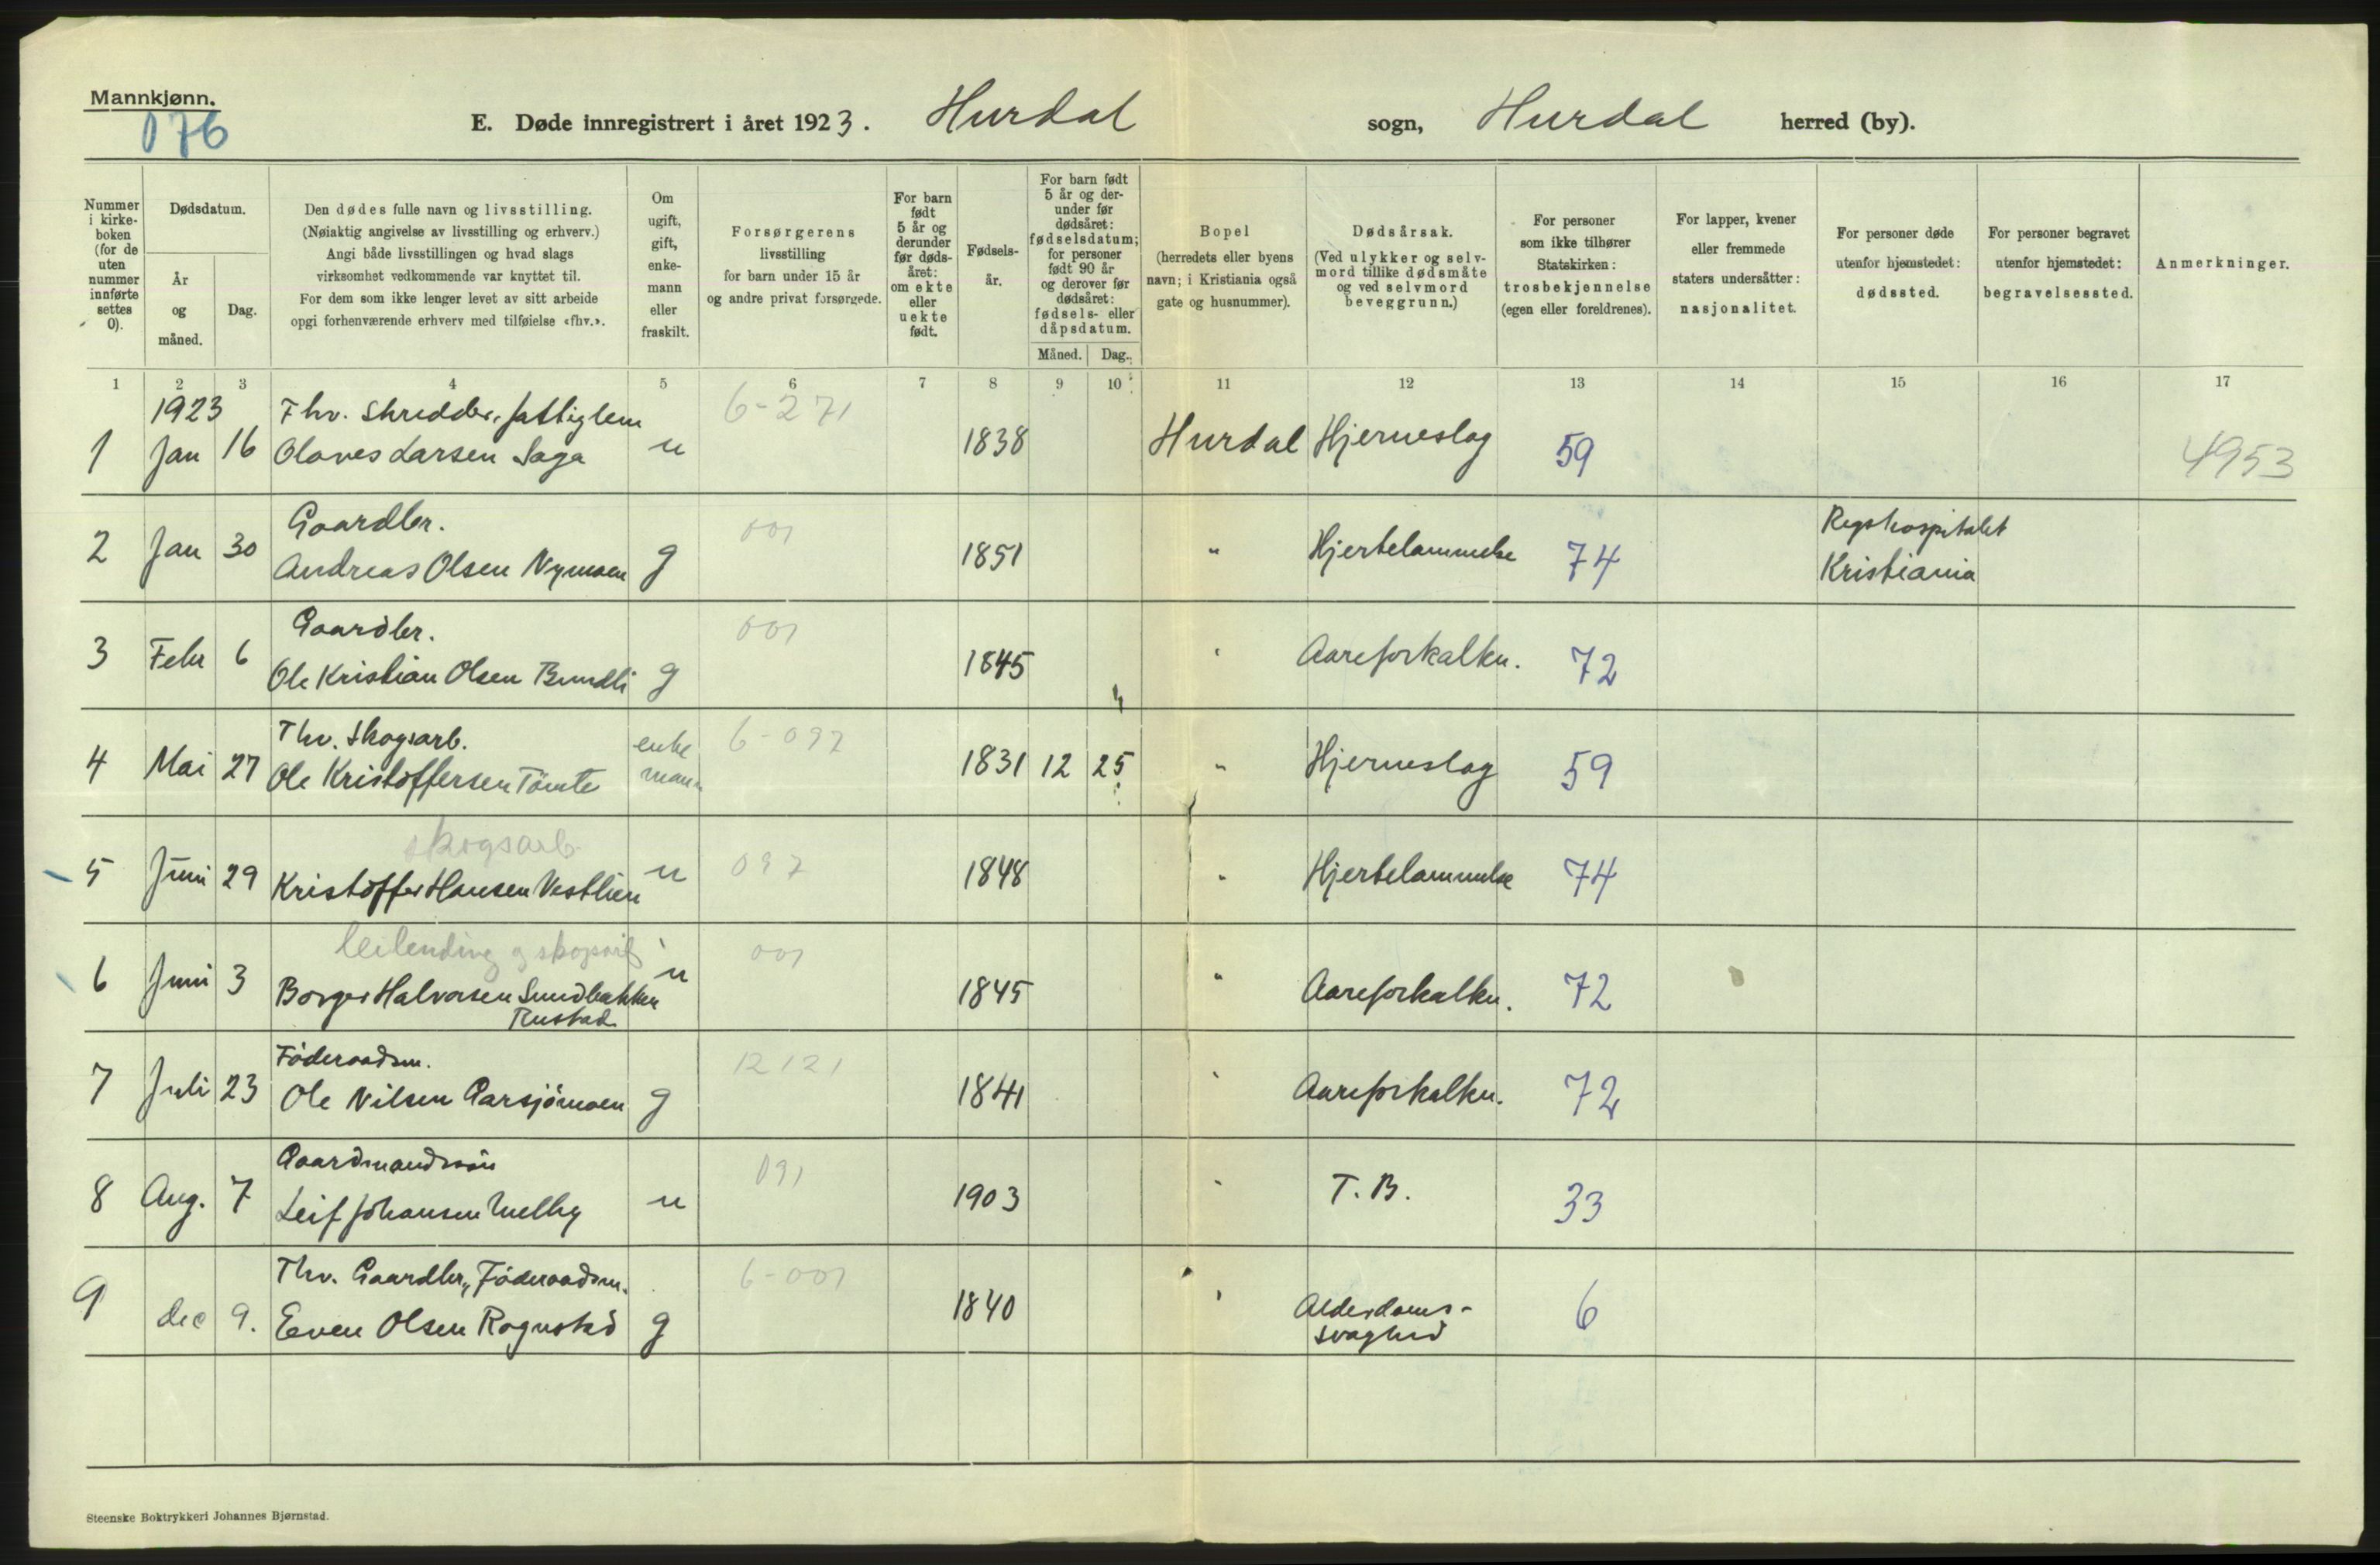 Mannkjønn.
076
E. Døde innregistrert i året 1923. Hurdal sogn, Hurdal herred (by).
Nummer i kirke-boken (for de uten nummer innførte settes 0).
Dødsdatum.
År og måned.
Dag.
Den dødes fulle navn og livsstilling.
(Nøiaktig angivelse av livsstilling og erhverv.)
Angi både livsstillingen og hvad slags
virksomhet vedkommende var knyttet til.
For dem som ikke lenger levet av sitt arbeide
opgi forhenværende erhverv med tilføielse «fhv.».
Om ugift, gift, enke-mann eller fraskilt.
Forsørgerens
livsstilling
for barn under 15 år
og andre privat forsørgede.
For barn født 5 år og derunder før døds-året: om ekte eller uekte født.
Fødsels-år.
For barn født 5 år og der-under før dødsåret: fødselsdatum; for personer født 90 år og derover før dødsåret: fødsels- eller dåpsdatum.
Måned. Dag.
Bopel
(herredets eller byens
navn; i Kristiania også
gate og husnummer).
Dødsårsak.
(Ved ulykker og selv-
mord tillike dødsmåte
og ved selvmord
beveggrunn.)
For personer
som ikke tilhører
Statskirken:
trosbekjennelse
(egen eller foreldrenes).
For lapper, kvener
eller fremmede
staters undersåtter:
nasjonalitet.
For personer døde
utenfor hjemstedet:
dødssted.
For personer begravet
utenfor hjemstedet:
begravelsessted.
Anmerkninger.
1 2 3 4 5 6 7 8 9 10 11 12 13 14 15 16 17
1923 Fhv. Skredder, fattiglem 6-271
1 Jan 16 Olaves Larsen Saga u 1838 Hurdal Hjerneslag 59 4953
Gaardbr. 001 Rigshospitalet
2 Jan 30 Andreas Olsen Nymoen g 1851 " Hjertelammelse 74 Kristiania
Gaardbr. 001
3 Febr 6 Ole Kristian Olsen Brundli g 1845 " Aareforkalkn. 72
Fhv. Skogsarb. enke 6-097
4 Mai 27 Ole Kristoffersen Tömte mann 1831 12 25 " Hjerneslag 59
skogsarb
5 Juni 29 Kristoffer Hansen Vestlien u 097 1848 " Hjertelammelse 74
leilending og skogsarb 001
6 Juni 3 Borger Halvorsen Sundbakken u 1845 " Aareforkalkn. 72
Rustad
Föderaadsm. 12121
7 Juli 23 Ole Nilsen Garsjömoen g 1841 " Aareforkalkn. 72
Gaardmandssön 091
8 Aug. 7 Leif Johansen Melby u 1903 " T.B. 33
Fhv. Gaardbr., Föderaadsm. 6-001
9 dec 9. Even Olsen Rognstad g 1840 " Alderdoms- 6
svaghed
Steenske Boktrykkeri Johannes Bjørnstad.